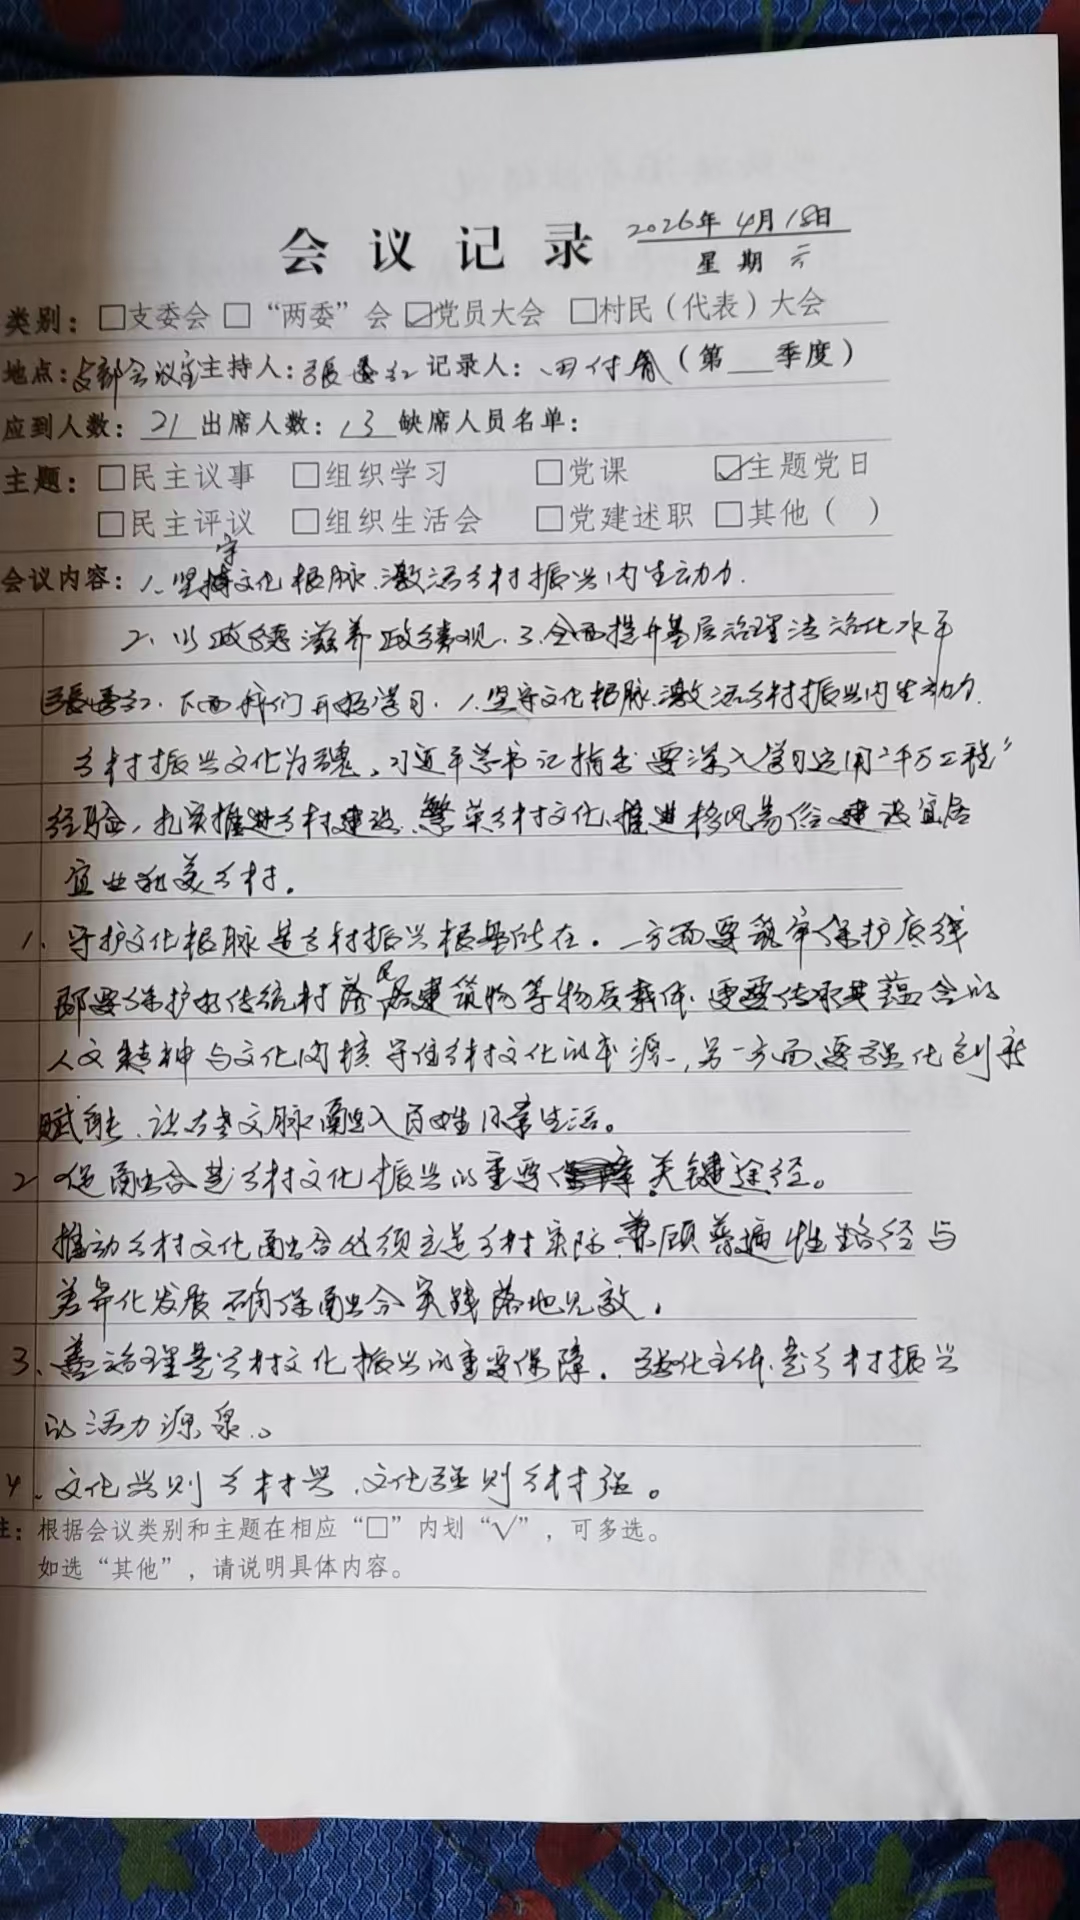 会议记录 2026年4月18日
星期
类别：□支委会□“两委”会☑党员大会 □村民（代表）大会
地点：支部会议室主持人：張 记录人：田付 （第 季度）
应到人数：21出席人数：13缺席人员名单：
主题：□民主议事 □组织学习 □党课 ☑主题党日
□民主评议 □组织生活会 □党建述职 □其他（ ）
会议内容：1、坚守文化根脉.激活乡村振兴内生动力.
2、以政德滋养政绩观.3.全面提升基层治理法治化水平
張 下面我们开始学习.1.坚守文化根脉.激活乡村振兴内生动力.
乡村振兴文化为魂、习近平总书记指出要深入学习运用“千万工程”
经验，扎实推进乡村建设、繁荣乡村文化、推进移风易俗建设宜居
宜业和美乡村。
1、守护文化根脉是乡村振兴根基所在。一方面要筑牢保护底线
即要保护好传统村落民居建筑物等物质载体.更要传承其蕴含的
人文精神与文化内核守住乡村文化的本源，另一方面要强化创新
赋能、让古老文脉融入百姓日常生活。
2 促融合是乡村文化振兴的重要 关键途径。
推动乡村文化融合必须立足乡村实际.兼顾普遍性路径与
差异化发展.确保融合实践落地见效。
3、善治理是乡村文化振兴的重要保障。强化主体是乡村振兴
的活力源泉。
4、文化兴则乡村兴、文化强则乡村强。
注：根据会议类别和主题在相应“□”内划“√”，可多选。
如选“其他”，请说明具体内容。